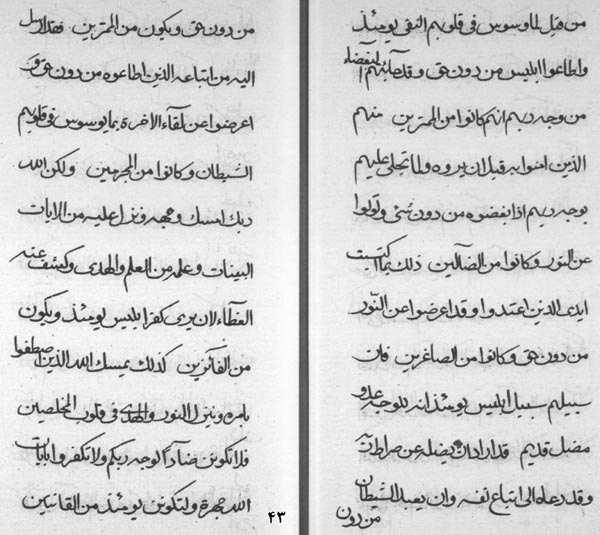 من قبل لما وسوس فی قلوبهم النفی یومئذ
واطاعوا ابلیس من دون حق وقد البغضاء
من وجه ربهم انهم کانوا من الممترین منهم
الذین امنوا به قبل ان یروه ولما تجلی علیهم
بوجه ربهم اذا بغضوه من دون شئ وتولوا
عن النور وکانوا من الضآلین ذلک بما اکتسبت
ایدی الذین اعتدوا وقد اعرضوا عن النور
من دون حق وکانوا من الصاغرین فان
سبیلهم سبیل ابلیس یومئذ انه عدو
مضل قدیم قد اراد ان یضله عن صراط ربه
وقد دعاه الی اتباع نفسه وان یعبد الشیطان
من دون
من دون حق ویکون من الممترین فقد ارسل
الیه من اتباعه الذین اطاعوه من دون حق وقد
اعرضوا عن لقآء الاخرة بما یوسوس فی قلوبهم
الشیطان وکانوا من المجرمین ولکن الله
ربک امسک وجهه ونزل علیه من الایات
البینات وعلمه من العلم والهدی وکشف عنه
الغطآء لان یری کفر ابلیس یومئذ ویکون
من الفآئزین کذلک یمسک الله الذین اصطفوا
بامره وینزل النور والهدی فی قلوب المخلصین
فلا تکونن ضآدا لوجه ربکم ولا تکفروا بایات
الله جهرة ولتکونن یومئذ من القانتین
۴۳